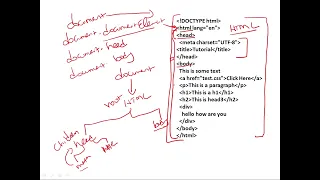 document
document.documentElement
document.head
document.body
document
root HTML
children
head
body
HTML
<!DOCTYPE html>
<html lang="en">
<head>
<meta charset="UTF-8">
<title>Tutorial</title>
</head>
<body>
This is some text
<a href="test.css">Click Here</a>
<p>This is a paragraph</p>
<h1>This is a h1</h1>
<h2>This is head#</h2>
<div>
hello how are you
</div>
</body>
</html>